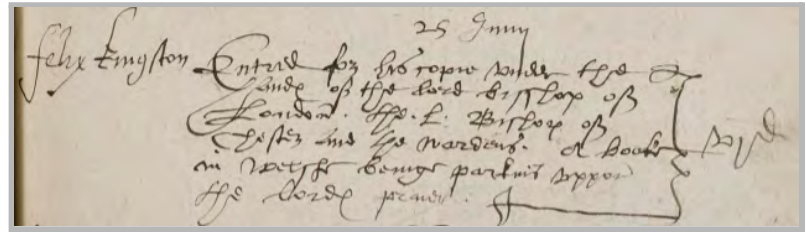 25 Junij
felix kingston Entred for his copie vnder the
handꝭ of the lord bisshop of
London. the. L. Bishop of
Chester and the wardens. A booke
in Welshe beinge parkins vppon
the lordꝭ praier. vjd